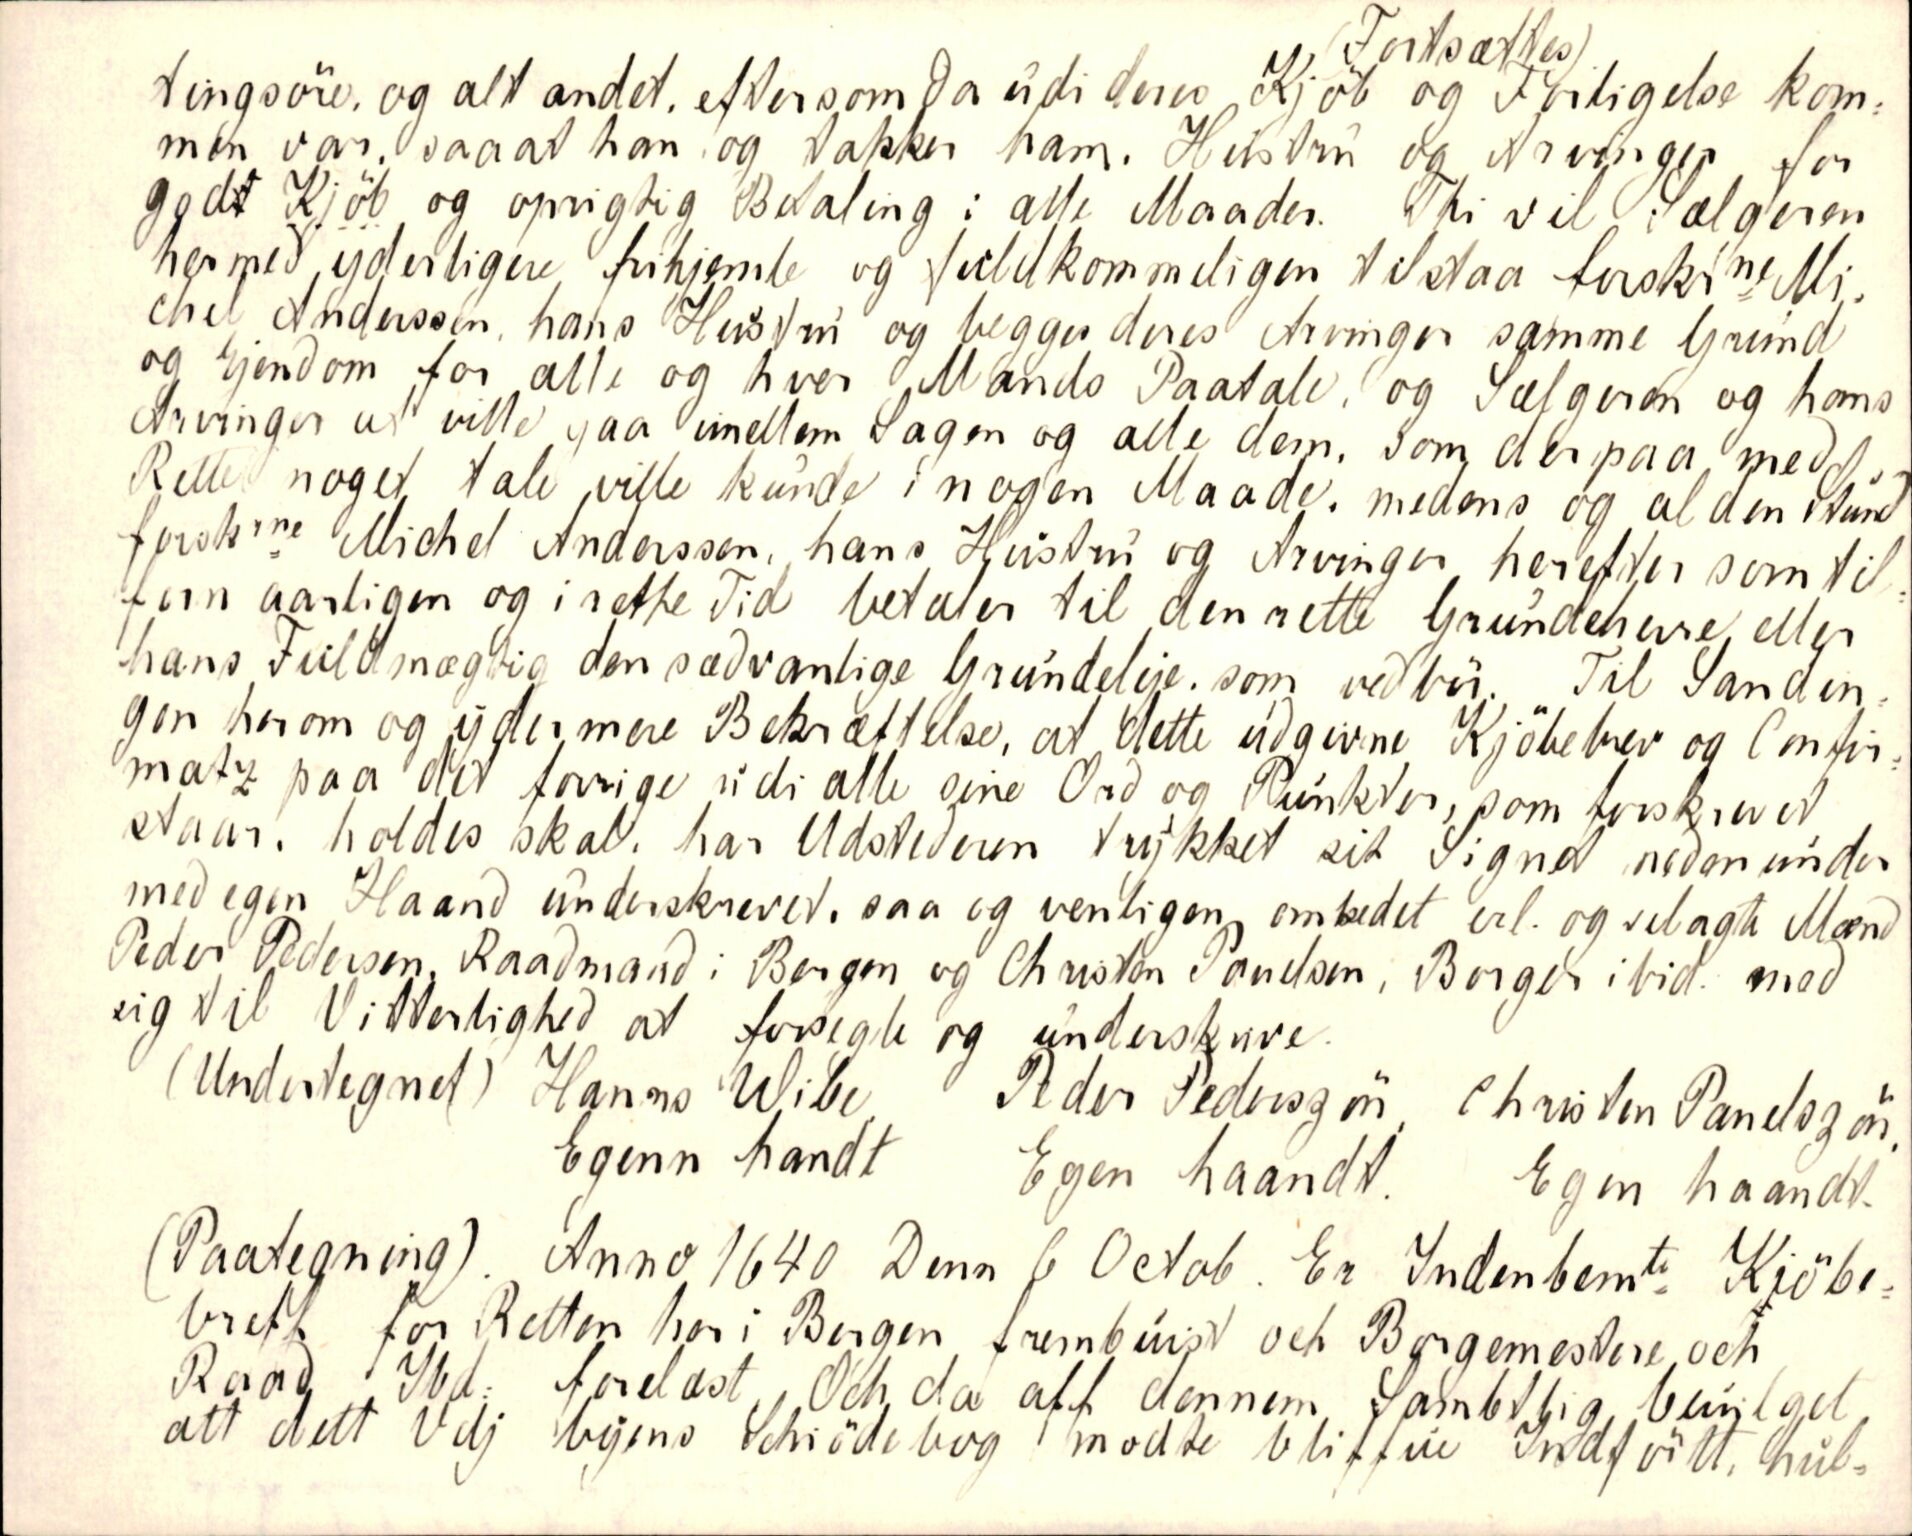 (Fortsættes)
tingsöre, og alt andet, eftersom Da udi deres Kjöb og Forligelse kom=
men var, saaat han og takker ham, Hustru og Arvinger for
godt Kjöb og oprigtig Betaling i alle Maader. Thi vil Sælgeren
hermed yderligere frihjemle og fuldkommeligen tilstaa forskrne Mi=
chel Anderssen, hans Hustru og begges deres Arvinger samme Grund
og Ejendom for alle og hver Mands Paatale, og Sælgeren og hans
Arvinger at ville gaa imellem Sagen og alle dem, som derpaa med
Rette noget tale ville kunde i nogen Maade, medens og al den Stund
forskrne Michel Anderssen, hans Hustru og Arvinger herefter som til=
forn aarligen og i rette Tid betaler til den rette Grundeherre eller
hans Fuldmægtig den sædvanlige Grundeleje, som ved bör. Til Sandin=
gen herom og ydermere Bekræftelse, at dette udgivne Kjöbebrev og Confir=
matz paa det forrige udi alle sine Ord og Punkter, som forskrevet
staar, holdes skal, har Udstederen trykket sit Signet neden under
med egen Haand underskrevet, saa og venligen ombedet erl. og velagte Mænd
Peder Pedersen, Raadmand i Bergen og Christen Pouelsen, Borger ibid. med
sig til Vitterlighed at forsegle og underskrive.
(Undertegnet) Hanns Wibe, Peder Pederszön, Christen Panelszön,
Egenn handt Egen haandt. Egen haandt.
(Paategning). Anno 1640 Denn 6 Octob. Er Indenbemte Kjöbe=
breff for Retten her i Bergen frembuist och Borgemestere och
Raad Ibd: forelæst, Och da aff dennem Sambtlig beuilget
att dett Vdj byens Schiödebog motte bliffue Indförtt, huil=